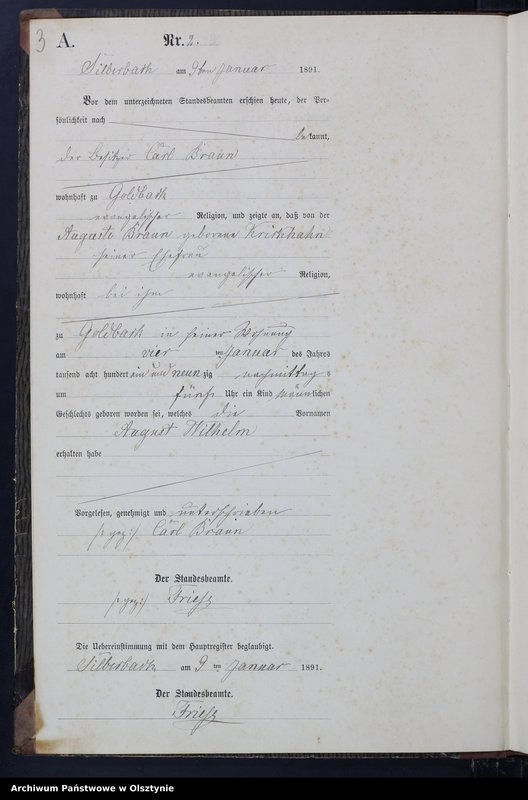 3 A. Nr. 2.
Silberbach am 9ten Januar 1891.
Vor dem unterzeichneten Standesbeamten erschien heute, der Per-
sönlichkeit nach
bekannt,
der Besitzer Carl Braun
wohnhaft zu Goldbach
evangelischer Religion, und zeigte an, daß von der
Auguste Braun geborene Krickhahn
seiner Ehefrau
evangelischer Religion,
wohnhaft bei ihm
zu Goldbach in seiner Wohnung
am vier ten Januar des Jahres
tausend acht hundert ein und neunzig nachmittags
um fünf Uhr ein Kind männlichen
Geschlechts geboren worden sei, welches die Vornamen
August Wilhelm
erhalten habe
Vorgelesen, genehmigt und unterschrieben
(: gez :) Carl Braun
Der Standesbeamte.
(: gez :) Friese
Die Uebereinstimmung mit dem Hauptregister beglaubigt.
Silberbach am 9 ten Januar 1891.
Der Standesbeamte.
Friese
Archiwum Państwowe w Olsztynie